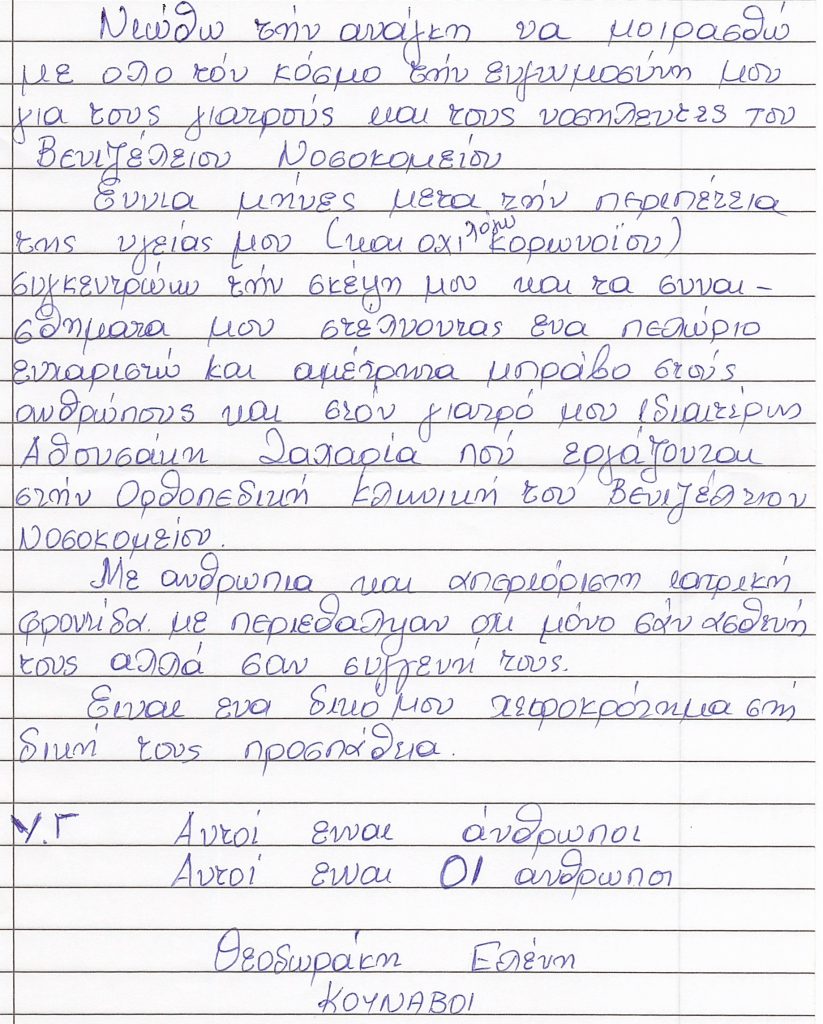 Νιώθω τήν ανάγκη να μοιρασθώ
με ολο τόν κόσμο τήν ευγνωμοσύνη μου
για τους γιατρούς και τους νοσηλευτές του
Βενιζέλειου Νοσοκομείου
Εννια μήνες μετα τήν περιπέτεια
της υγείας μου (και οχι λόγω κορωνοϊου)
συγκεντρώνω τήν σκέψη μου και τα συναι-
σθήματα μου στέλνοντας ενα πελώριο
ευχαριστώ και αμέτρητα μπράβο στούς
ανθρώπους και στόν γιατρό μου ιδιαιτέρως
Αθουσάκη Ζαχαρία πού εργάζονται
στήν Ορθοπεδική κλινική του Βενιζέλειου
Νοσοκομείου.
Με ανθρωπια και απεριόριστη ιατρική
φροντίδα με περιεθαλψαν οχι μόνο σάν ασθενή
τους αλλά σαν συγγενή τους.
Ειναι ενα δικό μου χειροκρότημα στή
δική τους προσπάθεια.
Υ.Γ Αυτοί ειναι άνθρωποι
Αυτοί ειναι ΟΙ ανθρωποι
Θεοδωράκη Ελένη
ΚΟΥΝΑΒΟΙ